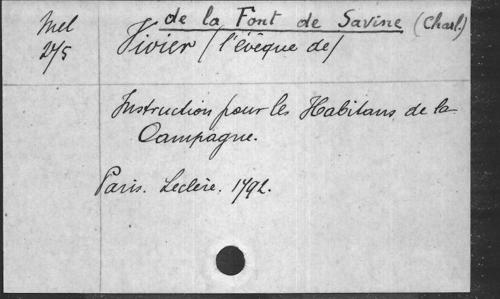 de la Font de Savine (Charl.)
Mel Vivier (l'évêque de)
275
Instruction pour les Habitans de la
Campagne.
Paris. Leclère. 1792.